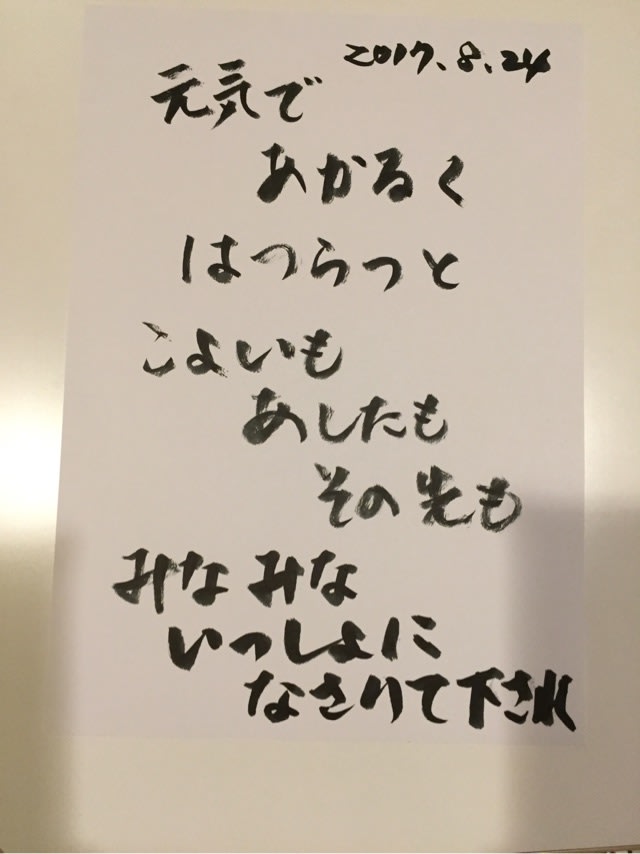 2017.8.24
元気で
あかるく
はつらつと
こよいも
あしたも
その先も
みなみな
いっしょに
なさりて下され